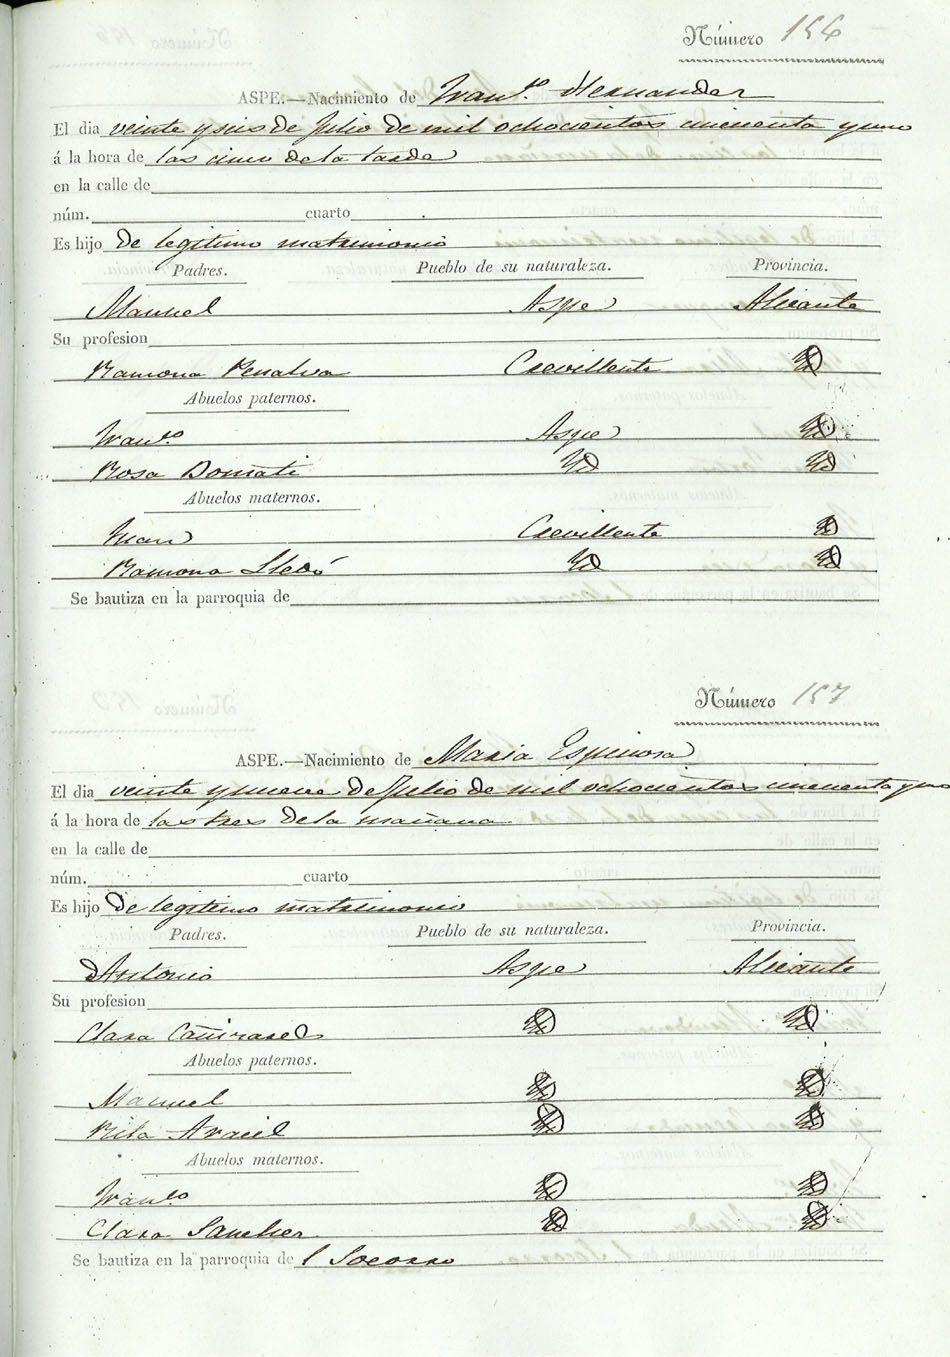 Número 156
ASPE.—Nacimiento de Franco. Hernandez
El dia veinte y seis de Julio de mil ochocientos cincuenta y uno
á la hora de las cinco de la tarde
en la calle de
núm. cuarto
Es hijo de legitimo matrimonio
Padres. Pueblo de su naturaleza. Provincia.
Manuel Aspe Alicante
Su profesion
Ramona Penalva Crevillente Yd
Abuelos paternos.
Franco Aspe Yd
Rosa Yd Yd
Abuelos maternos.
Juan Crevillente Yd
Ramona Lledó Yd Yd
Se bautiza en la parroquia de
Número 157
ASPE.—Nacimiento de Maria Espinosa
El dia veinte y nueve de Julio de mil ochocientos cincuenta y uno
á la hora de las tres de la mañana
en la calle de
núm. cuarto
Es hijo de legitimo matrimonio
Padres. Pueblo de su naturaleza. Provincia.
Antonio Aspe Alicante
Su profesion
Clara Cañizares Yd Yd
Abuelos paternos.
Manuel Yd Yd
Rita Aracil Yd Yd
Abuelos maternos.
Franco Yd Yd
Clara Sanchez Yd Yd
Se bautiza en la parroquia de l Socorro